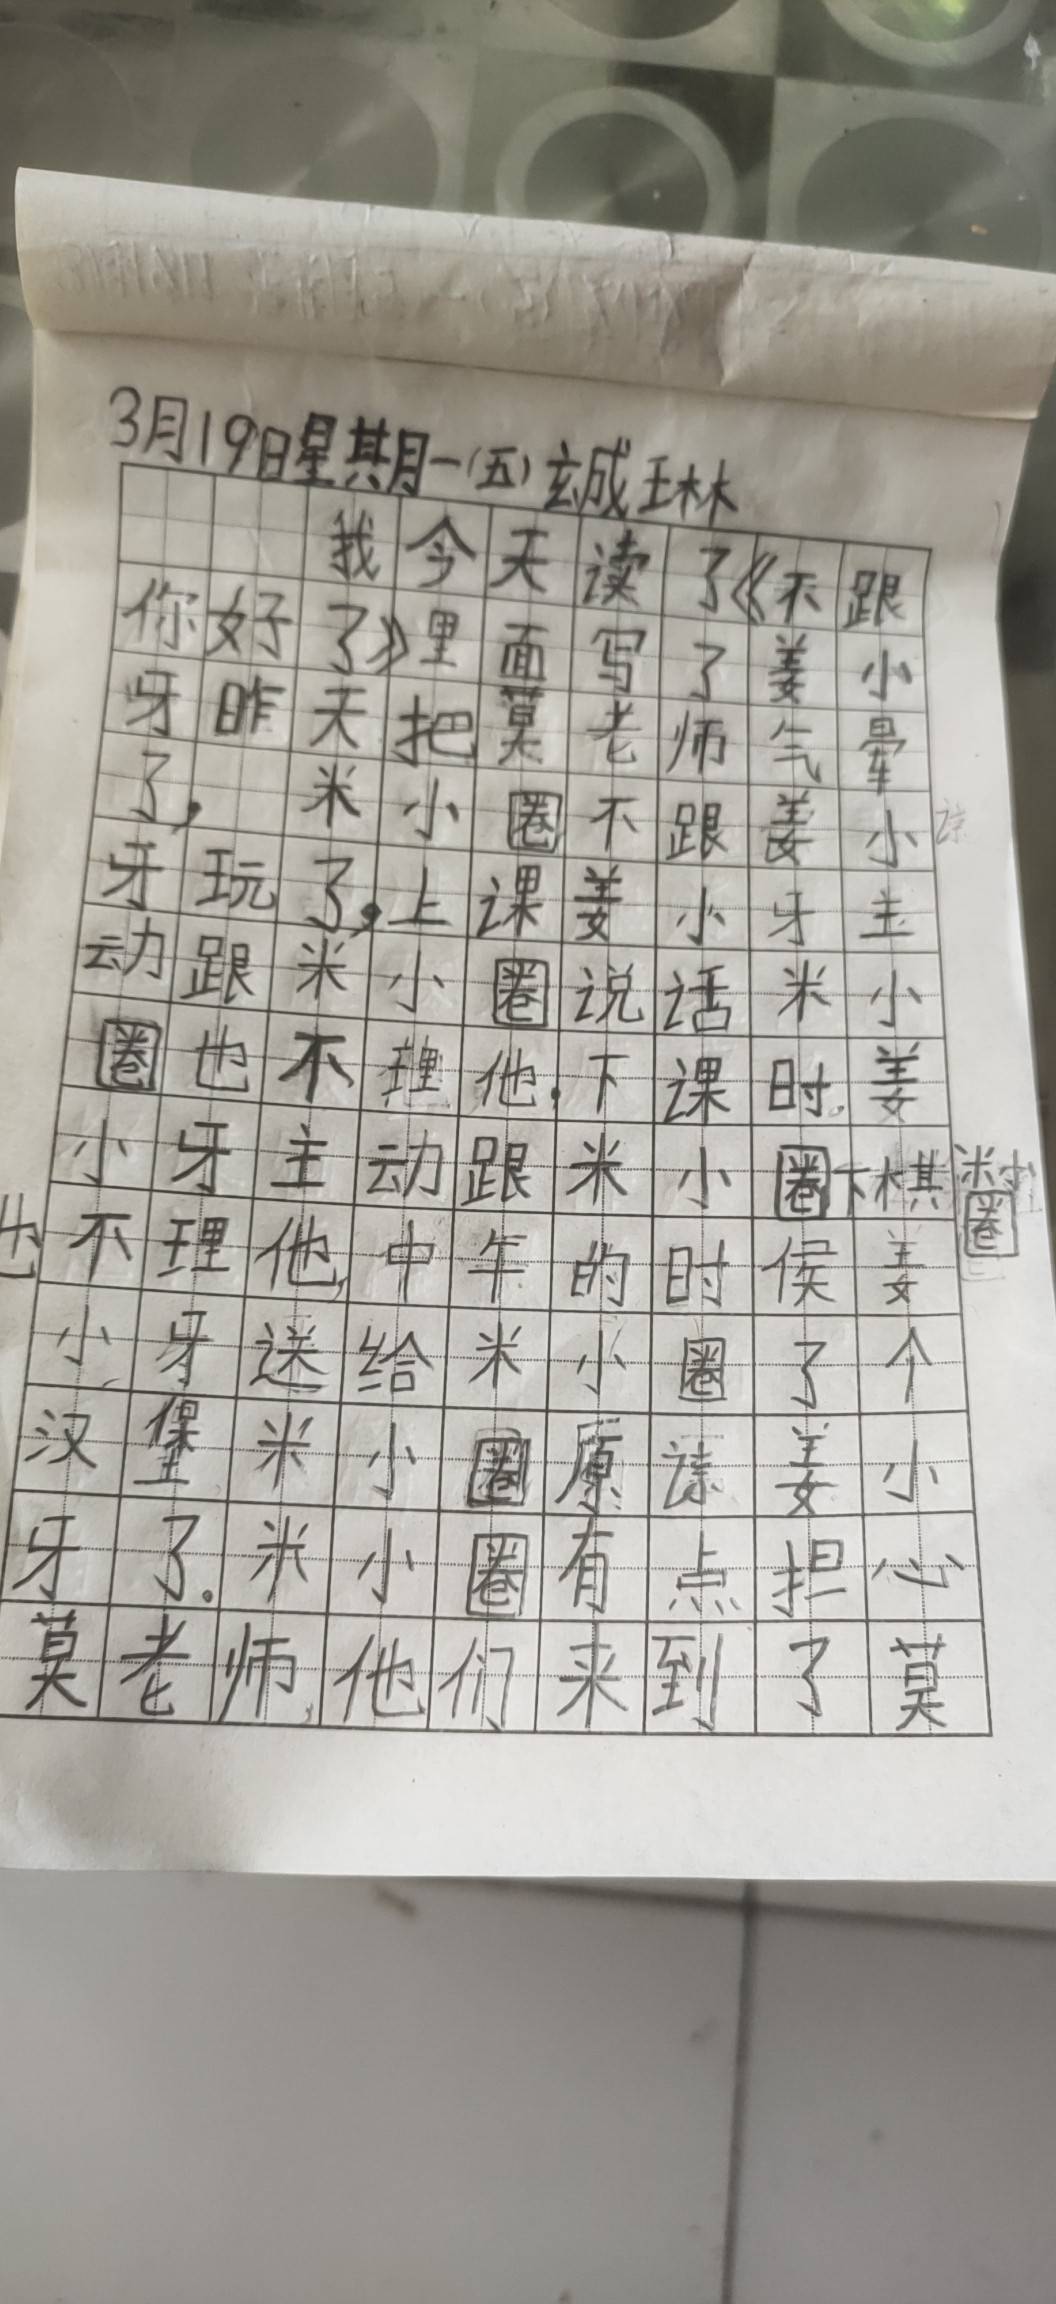 3月19日星期一(五)玄成琳
我今天读了《不跟
你好了》里面写了姜小
牙昨天把莫老师气晕
了，米小圈不跟姜小
牙玩了，上课姜小牙主
动跟米小圈说话米小
圈也不理他，下课时，姜
小牙主动跟米小圈下棋米小圈
也不理他，中午的时侯姜
小牙送给米小圈了个
汉堡米小圈原谅姜小
牙了．米小圈有点担心
莫老师，他们来到了莫